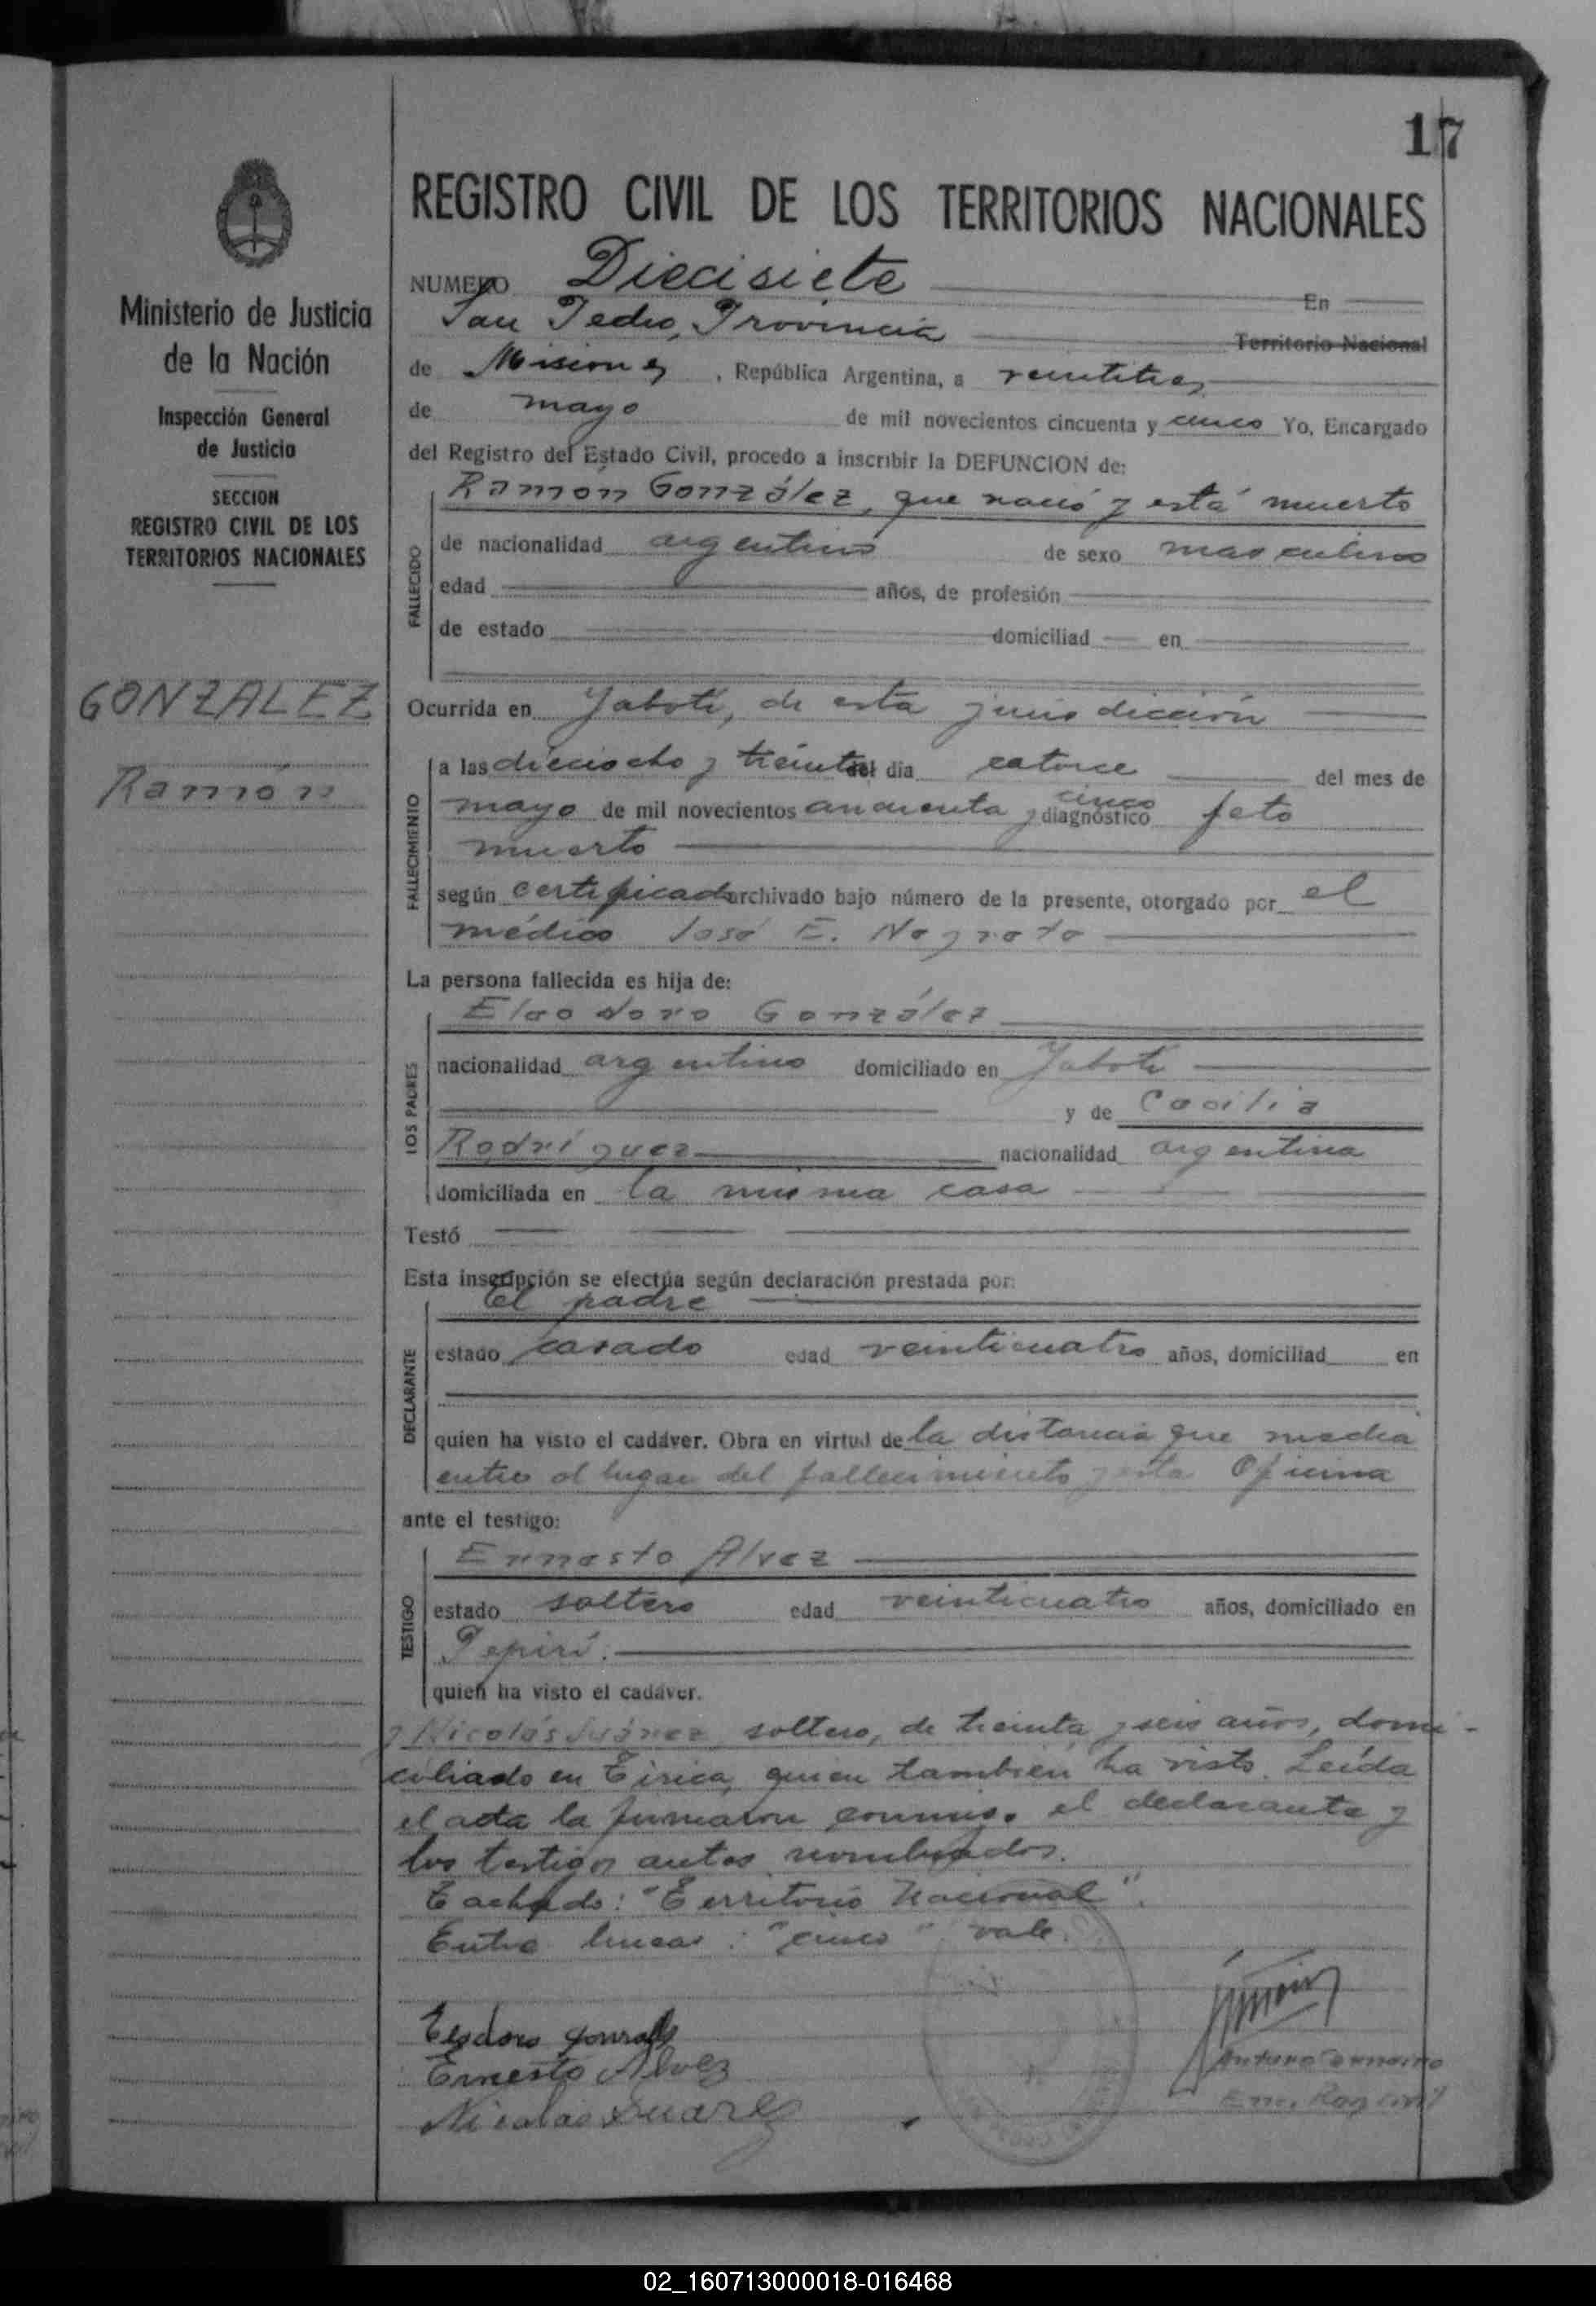 17
REGISTRO CIVIL DE LOS TERRITORIOS NACIONALES
Ministerio de Justicia
de la Nación
Inspección General
de Justicia
SECCION
REGISTRO CIVIL DE LOS
TERRITORIOS NACIONALES
GONZALEZ
Ramón
NUMERO Diecisiete En
San Pedro, Provincia Territorio Nacional
de Misiones, República Argentina, a veintitres
de mayo de mil novecientos cincuenta y cinco Yo, Encargado
del Registro del Estado Civil, procedo a inscribir la DEFUNCION de:
Ramón González, que nació y está muerto
FALLECIDO
de nacionalidad argentino de sexo masculino
edad años, de profesión
de estado domiciliad en
Ocurrida en Yabotí, de esta jurisdicción
FALLECIMIENTO
a las dieciocho y treinta del día catorce del mes de
cinco
mayo de mil novecientos cincuenta y diagnóstico feto
muerto
según certificado archivado bajo número de la presente, otorgado por el
médico José E. Negrete
La persona fallecida es hija de:
LOS PADRES
Eleodoro González
nacionalidad argentino domiciliado en Yabotí
y de Cecilia
Rodríguez nacionalidad argentina
domiciliada en la misma casa
Testó
Esta inscripción se efectúa según declaración prestada por:
DECLARANTE
El padre
estado casado edad veinticuatro años, domiciliad en
quien ha visto el cadáver. Obra en virtud de la distancia que media
entre el lugar del fallecimiento y esta Oficina
ante el testigo:
TESTIGO
Ernesto Alvez
estado soltero edad veinticuatro años, domiciliado en
Pepirí.
quien ha visto el cadáver.
y Nicolás Suárez, soltero, de treinta y seis años, domi-
ciliado en Tirica, quien también ha visto. Leída
el acta la firmaron conmigo el declarante y
los testigos antes nombrados.
Tachado: "Territorio Nacional".
Entre lineas: "cinco" vale.
Eleodoro Gonzalez
Ernesto Alvez
Nicolas Suarez
Enc. Reg Civil
02_160713000018-016468